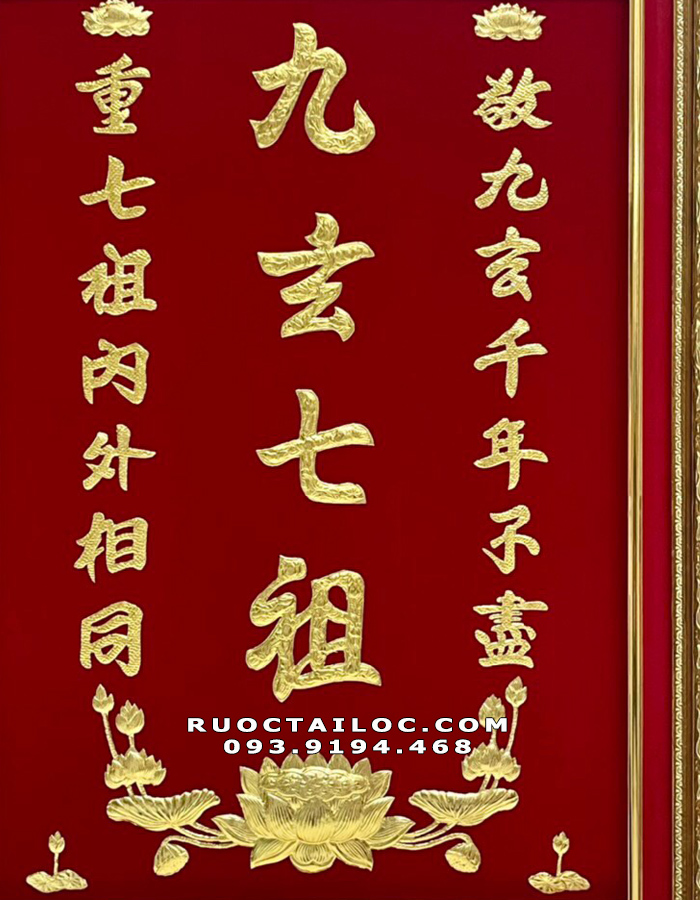 敬九玄千年不盡
九玄七祖
重七祖內外相同
RUOCTAILOC.COM
093.9194.468